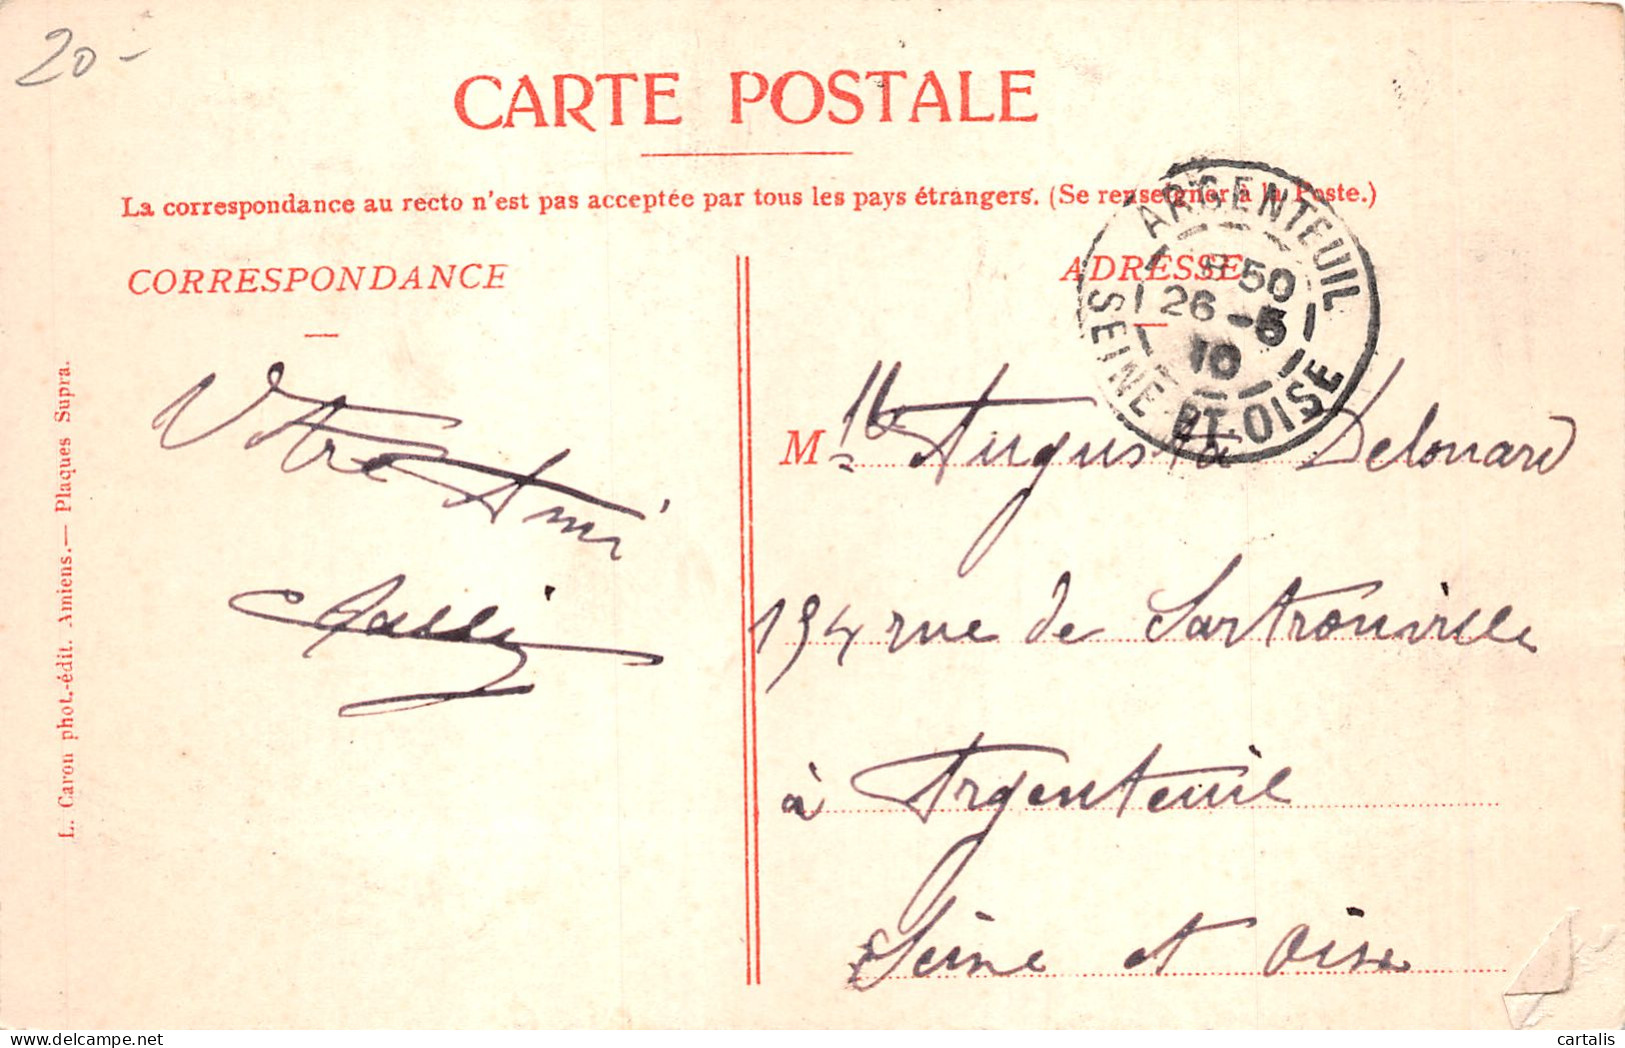 20-
CARTE POSTALE
La correspondance au recto n'est pas acceptée par tous les pays étrangers. (Se renseigner à la Poste.)
CORRESPONDANCE
ADRESSE
ARGENTEUIL
8 50
26 -5
10
SEINE-ET-OISE
Votre Ami
Mlle Augusta Delouard
194 rue de Sartrouville
à Argenteuil
Seine et Oise
L. Caron phot.-édit. Amiens.— Plaques Supra.
cartalis